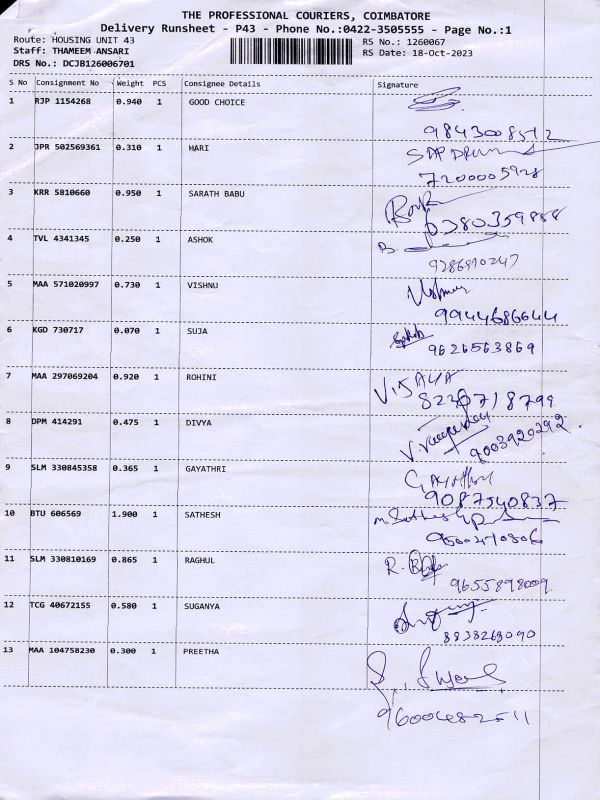 THE PROFESSIONAL COURIERS, COIMBATORE
Delivery Runsheet - P43 - Phone No.:0422-3505555 - Page No.:1
Route: HOUSING UNIT 43 RS No.: 1260067
Staff: THAMEEM ANSARI RS Date: 18-Oct-2023
DRS No.: DCJB126006701
S No Consignment No Weight PCS Consignee Details Signature
1 RJP 1154268 0.940 1 GOOD CHOICE
9843008512
2 JPR 502569361 0.310 1 HARI
7200005928
3 KRR 5810660 0.950 1 SARATH BABU
4 TVL 4341345 0.250 1 ASHOK
9286910247
5 MAA 571020997 0.730 1 VISHNU
9944686644
6 KGD 730717 0.070 1 SUJA
9626563869
7 MAA 297069204 0.920 1 ROHINI
VIJAYA
8220718799
8 DPM 414291 0.475 1 DIVYA
9003920292
9 SLM 330845358 0.365 1 GAYATHRI
9087540837
10 BTU 606569 1.900 1 SATHESH
11 SLM 330810169 0.865 1 RAGHUL
9655898009
12 TCG 40672155 0.580 1 SUGANYA
8838269090
13 MAA 104758230 0.300 1 PREETHA
9600482511